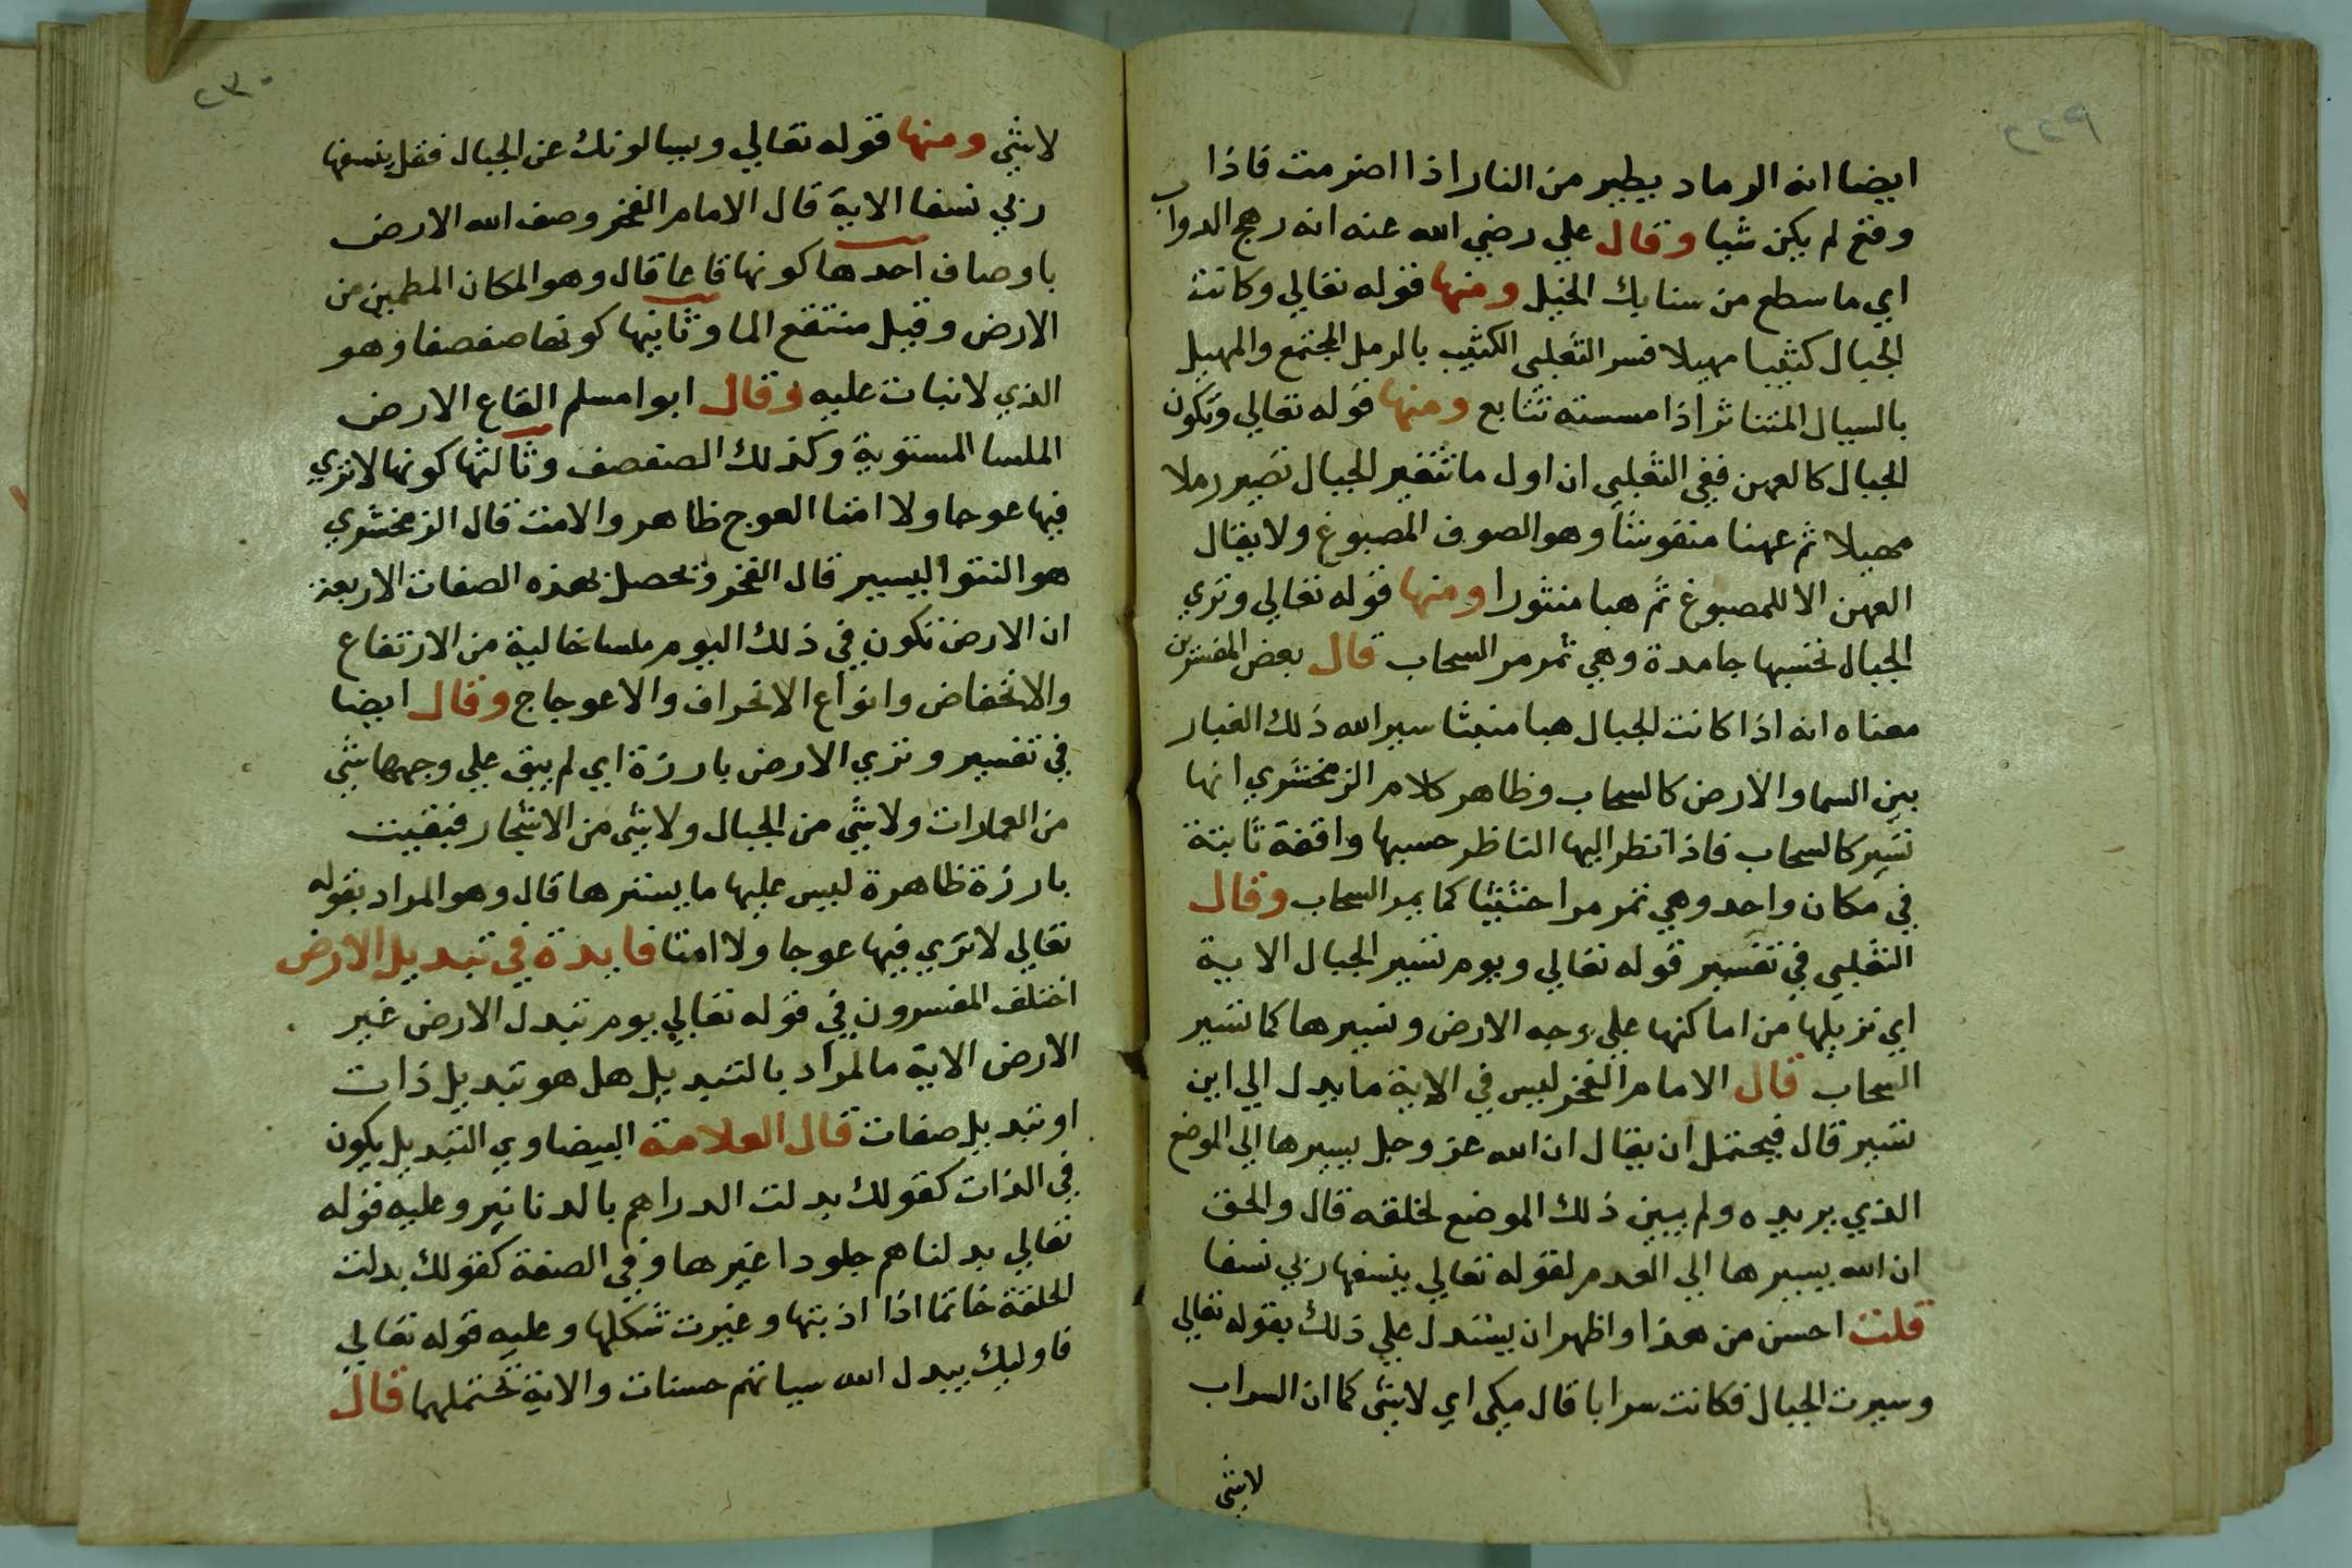 ٢٢٩
ايضا انه الرماد يطير من النار اذا اضرمت فاذا
وقع لم يكن شيا وقال علي رضي الله عنه انه رهج الدواب
اي ما سطع من سنابك الخيل ومنها قوله تعالي وكانت
الجبال كثيبا مهيلا فسر الثعلبي الكثيب بالرمل المجتمع والمهيل
بالسيال المتناثر اذا مسسته تتابع ومنها قوله تعالي وتكون
الجبال كالعهن ففي الثعلبي ان اول ما تتغير الجبال تصير رملا
مهيلا ثم عهنا منفوشا وهو الصوف المصبوغ ولا يقال
العهن الا للمصبوغ ثم هبا منثورا ومنها قوله تعالي وتري
الجبال تحسبها جامدة وهي تمر مر السحاب قال بعض المفسرين
معناه انه اذا كانت الجبال هبا منبثا سير الله ذلك الغبار
بين السما والارض كالسحاب وظاهر كلام الزمخشري انها
تسير كالسحاب فاذا نظر اليها الناظر حسبها واقفة ثابتة
في مكان واحد وهي تمر مرا حثيثا كما يمر السحاب وقال
الثعلبي في تفسير قوله تعالي ويوم نسير الجبال الاية
اي نزيلها من اماكنها علي وجه الارض ونسيرها كما نسير
السحاب قال الامام الفخر ليس في الاية ما يدل الي اين
تسير قال فيحتمل ان يقال ان الله عز وجل يسيرها الي الموضع
الذي يريده ولم يبين ذلك الموضع لخلقه قال والحق
ان الله يسيرها الي العدم لقوله تعالي ينسفها ربي نسفا
قلت احسن من هذا واظهر ان يستدل علي ذلك بقوله تعالي
وسيرت الجبال فكانت سرابا قال ميكي اي لا شي كما ان السراب
لا شي
٢٣٠
لا شي ومنها قوله تعالي ويسالونك عن الجبال فقل ينسفها
ربي نسفا الاية قال الامام الفخر وصف الله الارض
باوصاف احدها كونها قاعا قال وهو المكان المطمين من
الارض وقيل منتقع الما وثانيها كونها صفصفا وهو
الذي لا نبات عليه وقال ابوا مسلم القاع الارض
الملسا المستوية وكذلك الصفصف وثالثها كونها لا تري
فيها عوجا ولا امتا العوج ظاهر والامت قال الزمخشري
هو النتوا اليسير قال الفخر وتحصل بهذه الصفات الاربعة
ان الارض تكون في ذلك اليوم ملسا خالية من الارتفاع
والانخفاض وانواع الانحراف والاعوجاج وقال ايضا
في تفسير وتري الارض بارزة اي لم يبق علي وجهها شي
من العمارات ولا شي من الجبال ولا شي من الاشجار فبقيت
بارزة ظاهرة ليس عليها ما يسترها قال وهو المراد بقوله
تعالي لا تري فيها عوجا ولا امتا فايدة في تبديل الارض
اختلف المفسرون في قوله تعالي يوم تبدل الارض غير
الارض الاية ما المراد بالتبديل هل هو تبديل ذات
او تبديل صفات قال العلامة البيضاوي التبديل يكون
في الذات كقولك بدلت الدراهم بالدنانير وعليه قوله
تعالي بدلناهم جلودا غيرها وفي الصفة كقولك بدلت
الحلقة خاتما اذا اذبتها وغيرت شكلها وعليه قوله تعالي
فاوليك يبدل الله سياتهم حسنات والاية تحتملهما قال